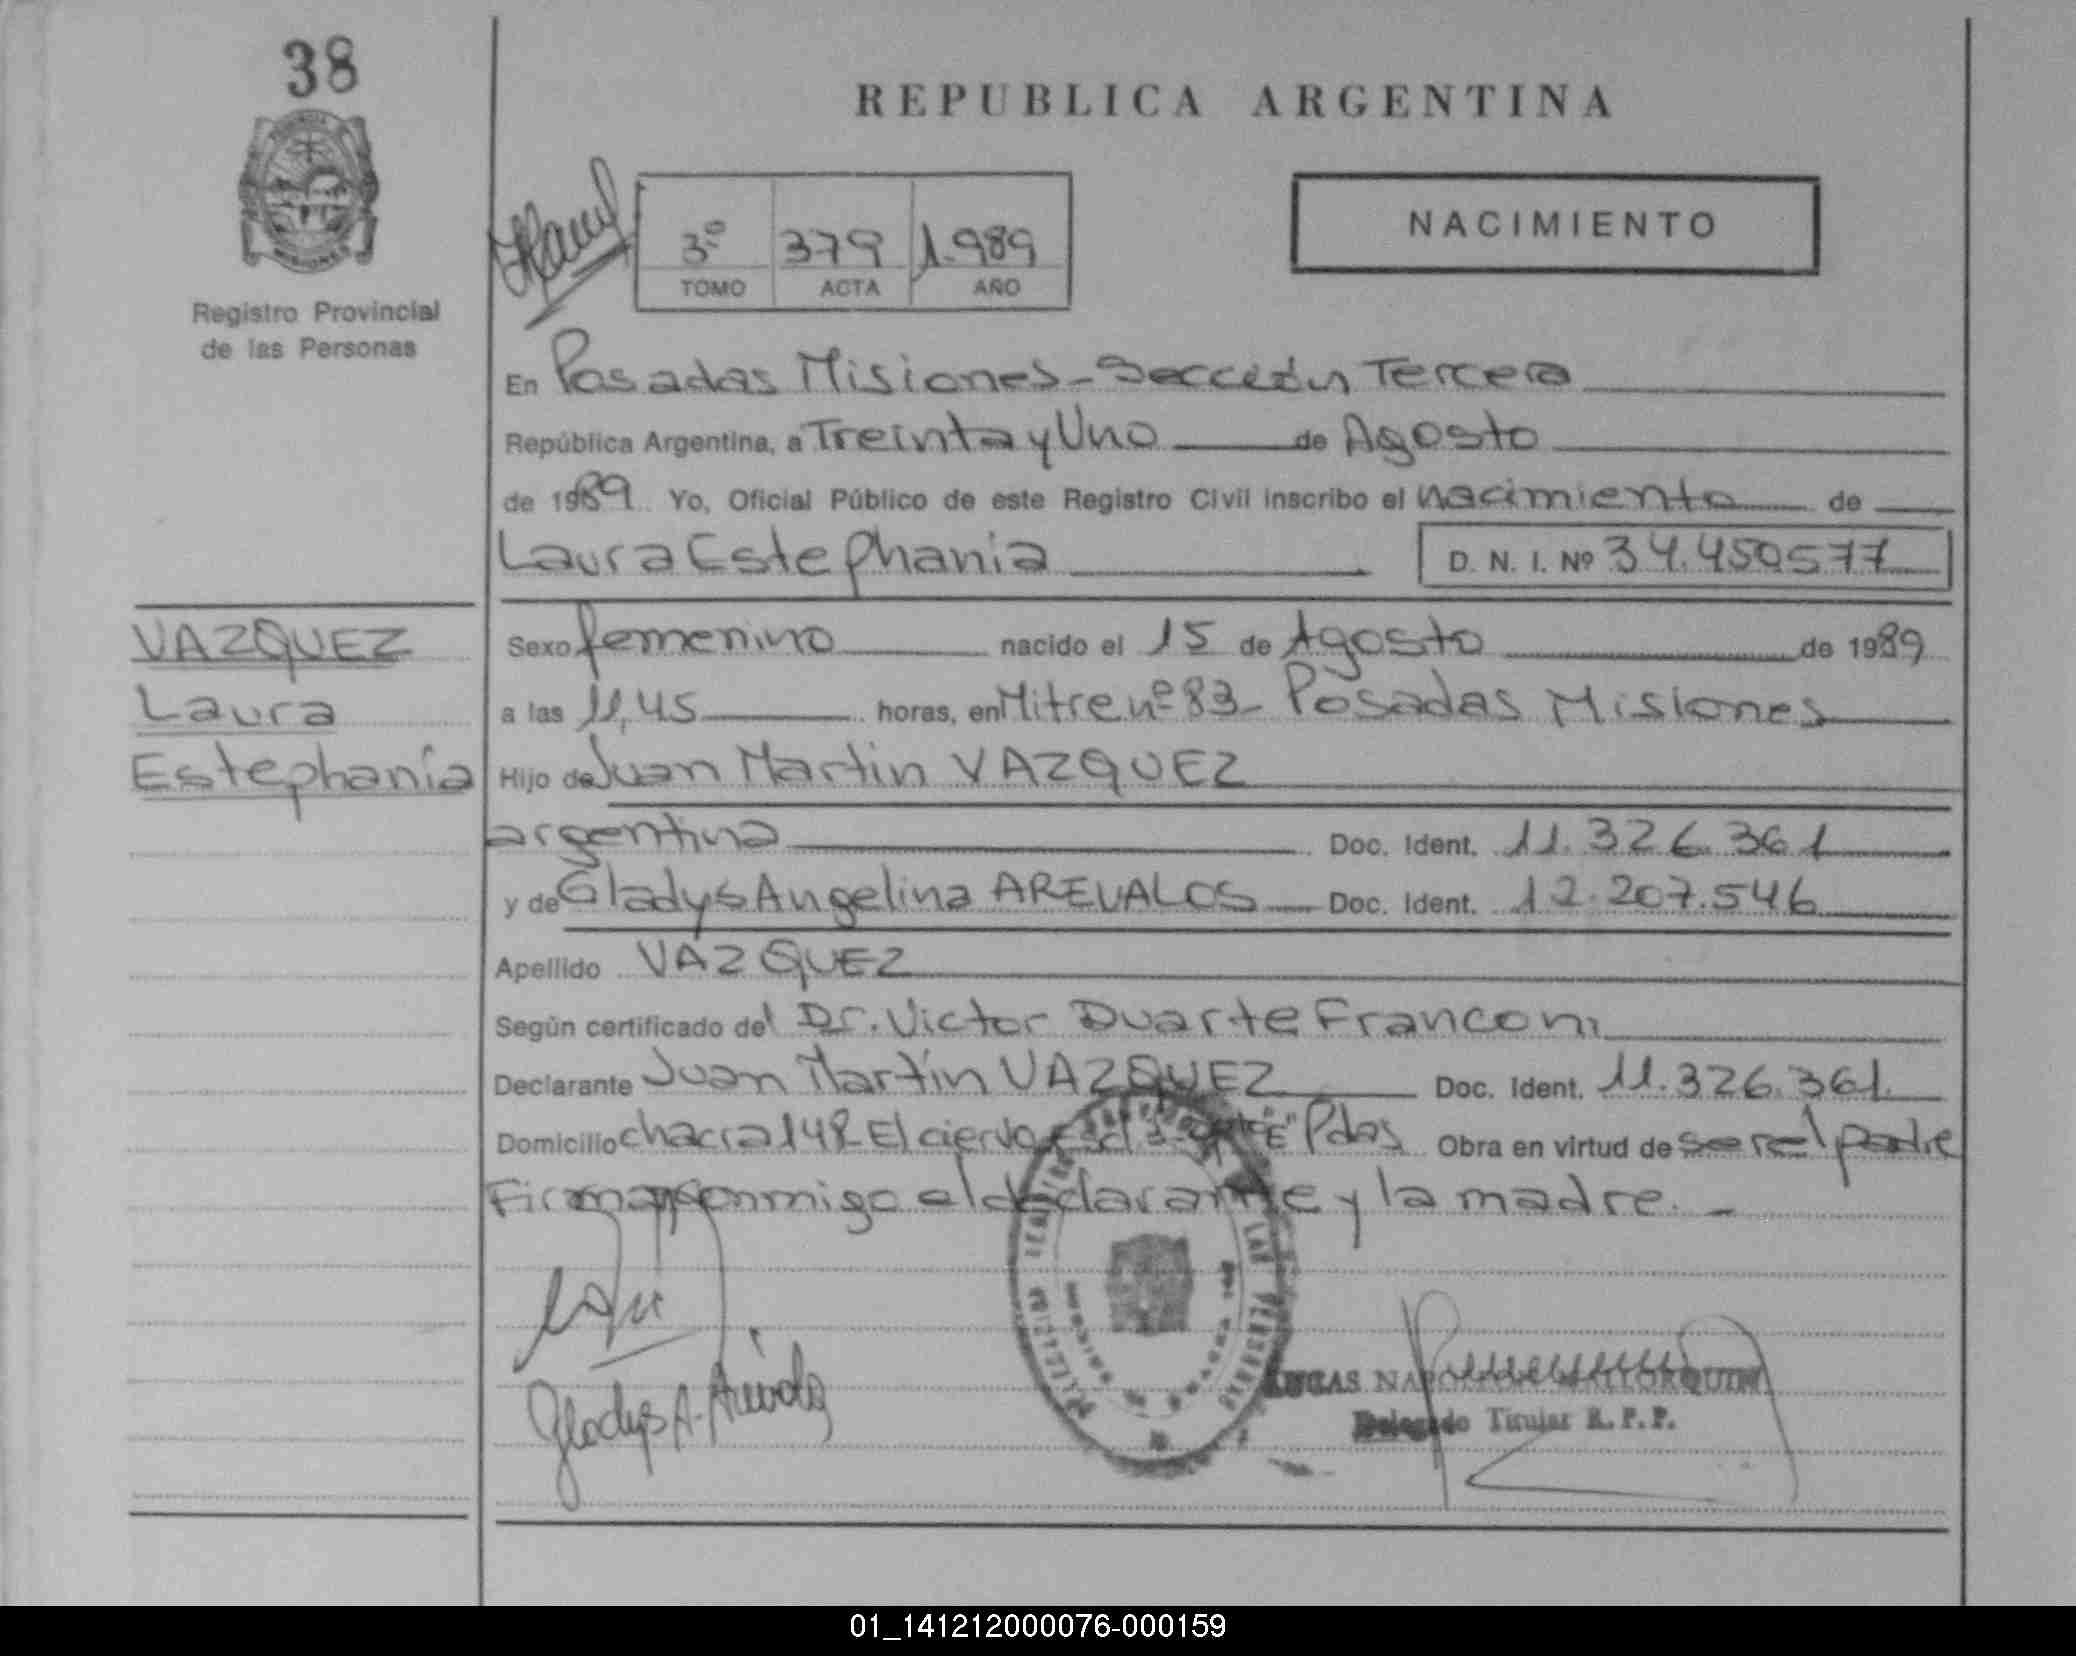 38
REPUBLICA ARGENTINA
3º 379 1.989
TOMO ACTA AÑO
NACIMIENTO
Registro Provincial
de las Personas
En Posadas Misiones - Sección Tercera
República Argentina, a Treinta y Uno de Agosto
de 1989 Yo, Oficial Público de este Registro Civil inscribo el nacimiento de
Laura Estephania D. N. I. Nº 34.450577
VAZQUEZ
Laura
Estephania
Sexo femenino nacido el 15 de Agosto de 1989
a las 11,45 horas, en Mitre nº 83 - Posadas Misiones
Hijo de Juan Martin VAZQUEZ
argentina Doc. Ident. 11.326.361
y de Gladys Angelina AREVALOS Doc. Ident. 12.207.546
Apellido VAZQUEZ
Según certificado del Dr. Victor Duarte Franconi
Declarante Juan Martín VAZQUEZ Doc. Ident. 11.326.361.
Domicilio chacra 148 El ciervo Pdas Obra en virtud de ser el padre
Firman conmigo el declarante y la madre. -
Gladys A. Arévalos
LUCAS
Delegado Titular R. P. P.
01_141212000076-000159